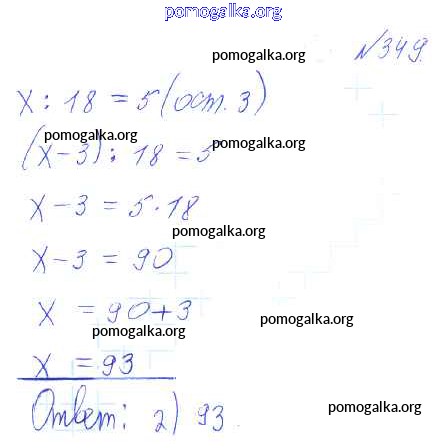 pomogalka.org
№349.
pomogalka.org
x : 18 = 5 (ост. 3)
pomogalka.org
pomogalka.org
(x-3) : 18 = 5
x-3 = 5·18
pomogalka.org
x-3 = 90
x = 90+3
pomogalka.org
pomogalka.org
x = 93
Ответ: 2) 93.
pomogalka.org